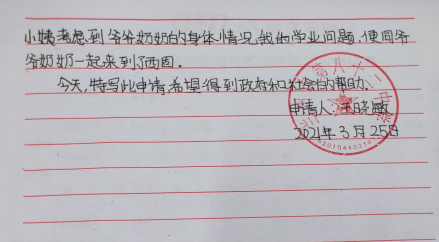 小姨考虑到爷爷奶奶的身体小情况,我的学业问题,便同爷
爷奶奶一起来到了西固.
今天,特写此申请,希望得到政府和社会的帮助.
申请人:王晓敏
2021年3月25日
第八十二中学